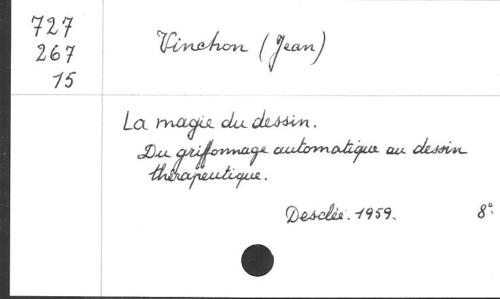 727
267
15
Vinchon (Jean)
La magie du dessin.
Du griffonnage automatique au dessin
thérapeutique.
Desclée. 1959. 8°: